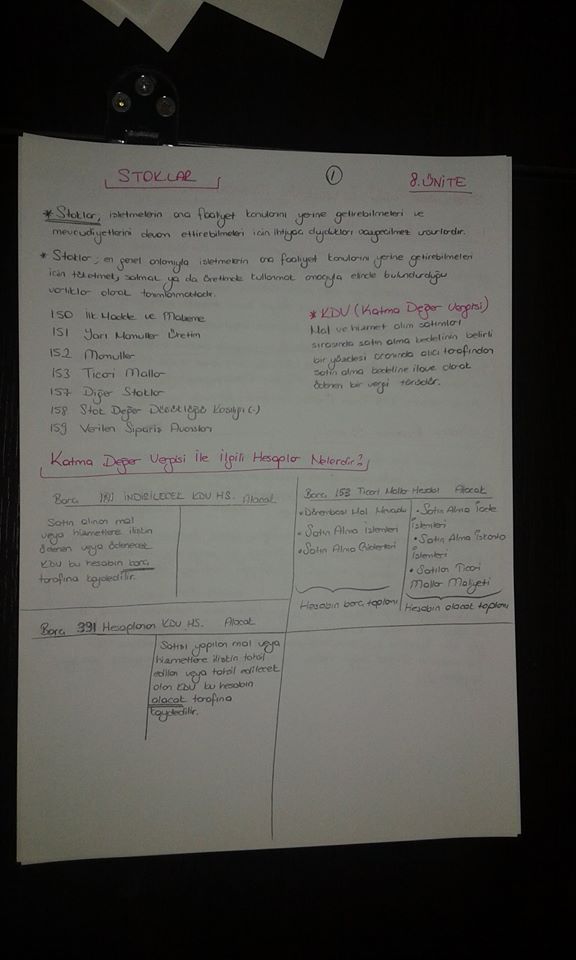 STOKLAR
1
8.ÜNİTE
* Stoklar, işletmelerin ana faaliyet konularını yerine getirebilmeleri ve
mevcudiyetlerini devam ettirebilmeleri için ihtiyaç duydukları vazgeçilmez unsurlardır.
* Stoklar; en genel anlamıyla işletmelerin ana faaliyet konularını yerine getirebilmeleri
için tüketmek, satmak ya da üretimde kullanmak amacıyla elinde bulundurduğu
varlıklar olarak tanımlanmaktadır.
150 İlk Madde ve Malzeme
151 Yarı Mamuller Üretim
152 Mamuller
153 Ticari Mallar
157 Diğer Stoklar
158 Stok Değer Düşüklüğü Karşılığı (-)
159 Verilen Sipariş Avansları
* KDV (Katma Değer Vergisi)
Mal ve hizmet alım satımları
sırasında satın alma bedelinin belirli
bir yüzdesi oranında alıcı tarafından
satın alma bedeline ilave olarak
ödenen bir vergi türüdür.
Katma Değer Vergisi İle İlgili Hesaplar Nelerdir?
Borç 191 İNDİRİLECEK KDV HS. Alacak
Satın alınan mal
veya hizmetlere ilişkin
ödenen veya ödenecek
KDV bu hesabın borç
tarafına kaydedilir.
Borç 153 Ticari Mallar Hesabı Alacak
• Dönembaşı Mal Mevcudu
• Satın Alma İşlemleri
• Satın Alma Giderleri
Hesabın borç toplamı
• Satın Alma İade
İşlemleri
• Satın Alma İskonto
İşlemleri
• Satılan Ticari
Mallar Maliyeti
Hesabın alacak toplamı
Borç 391 Hesaplanan KDV HS. Alacak
Satışı yapılan mal veya
hizmetlere ilişkin tahsil
edilen veya tahsil edilecek
olan KDV bu hesabın
alacak tarafına
kaydedilir.